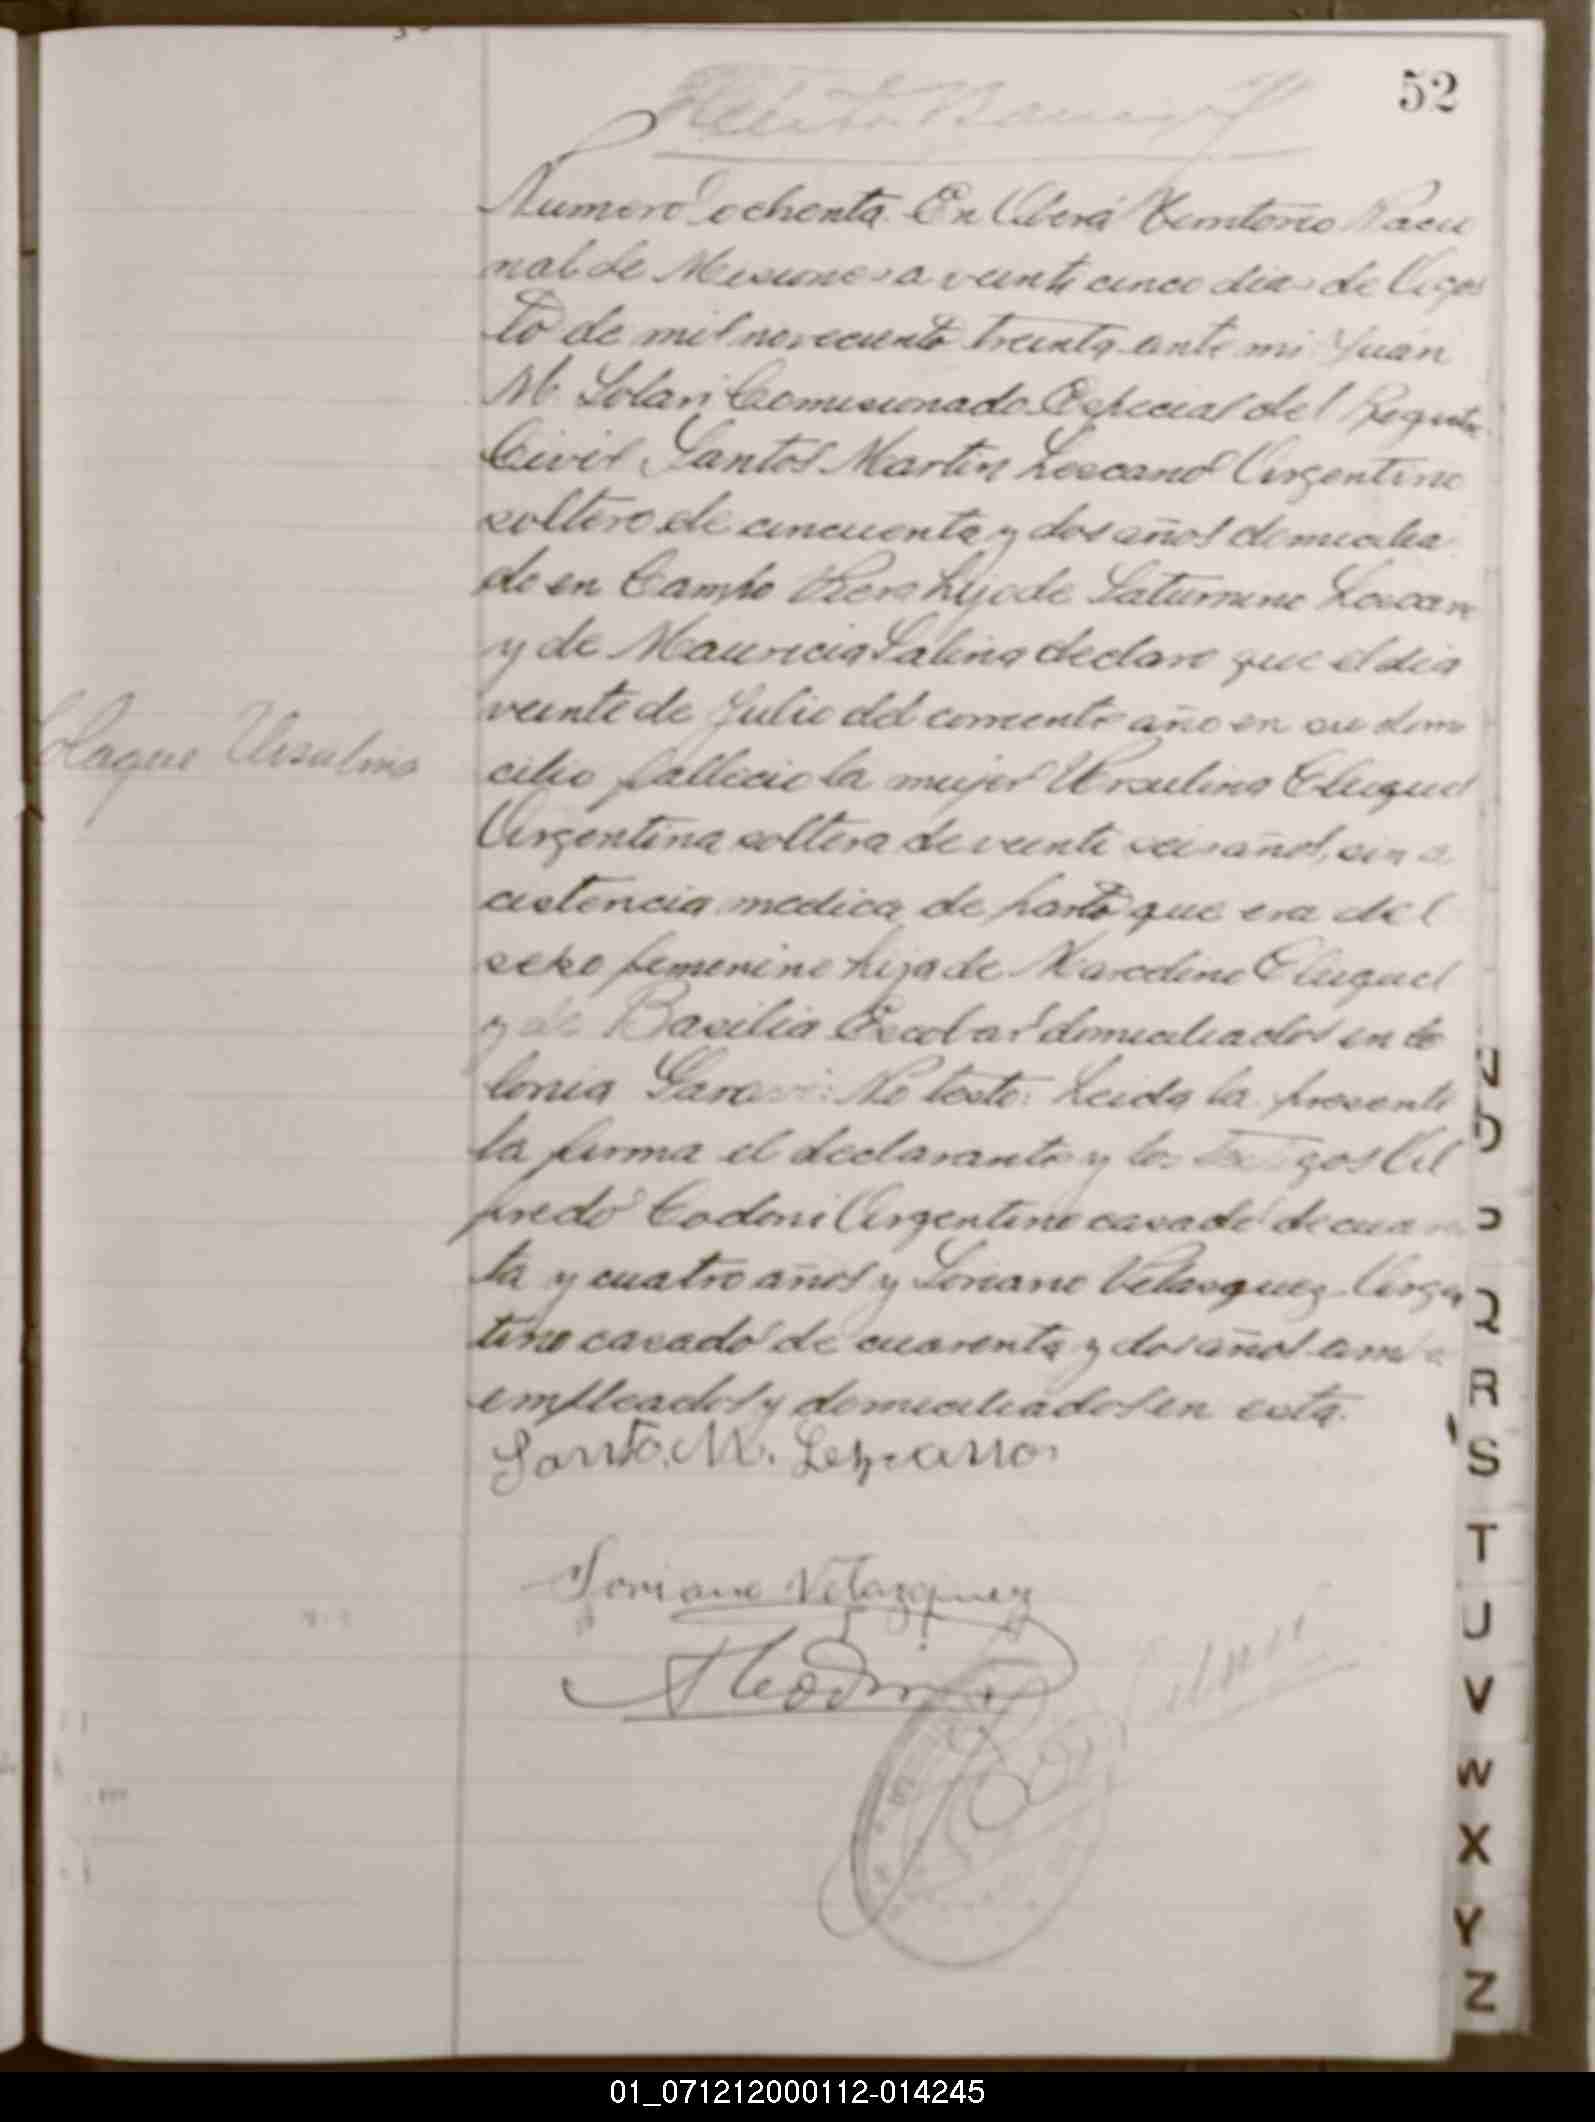 52
Numero ochenta. En Oberá Territorio Nacio
nal de Misiones a veinte cinco dias de Agos
to de mil novecientos treinta ante mi Juan
M Solari Comisionado Especial del Registro
Civil Santos Martin Lescano Argentino
soltero de cincuenta y dos años domicilia
do en Campo Viera hijo de Saturnino Lescano
y de Mauricia Salina declaro que el dia
veinte de Julio del corriente año en su domi
Ursulina
cilio fallecio la mujer Ursulina
Argentina soltera de veinte seis años, sin a
cistencia medica de parto que era del
sexo femenino hija de Marcelino
y de Basilia Escobar domiciliados en Co
lonia No teste: Leida la presente
la firma el declarante y los testigos Al
fredo Codoni Argentino casado de cuaren
ta y cuatro años y Soriano Velasquez Argen
tino casado de cuarenta y dos años ambos
empleados y domiciliados en esta.
Santo. M. Lezcano
Soriano Velazquez
01_071212000112-014245
J
Q
R
S
T
U
V
W
X
Y
Z